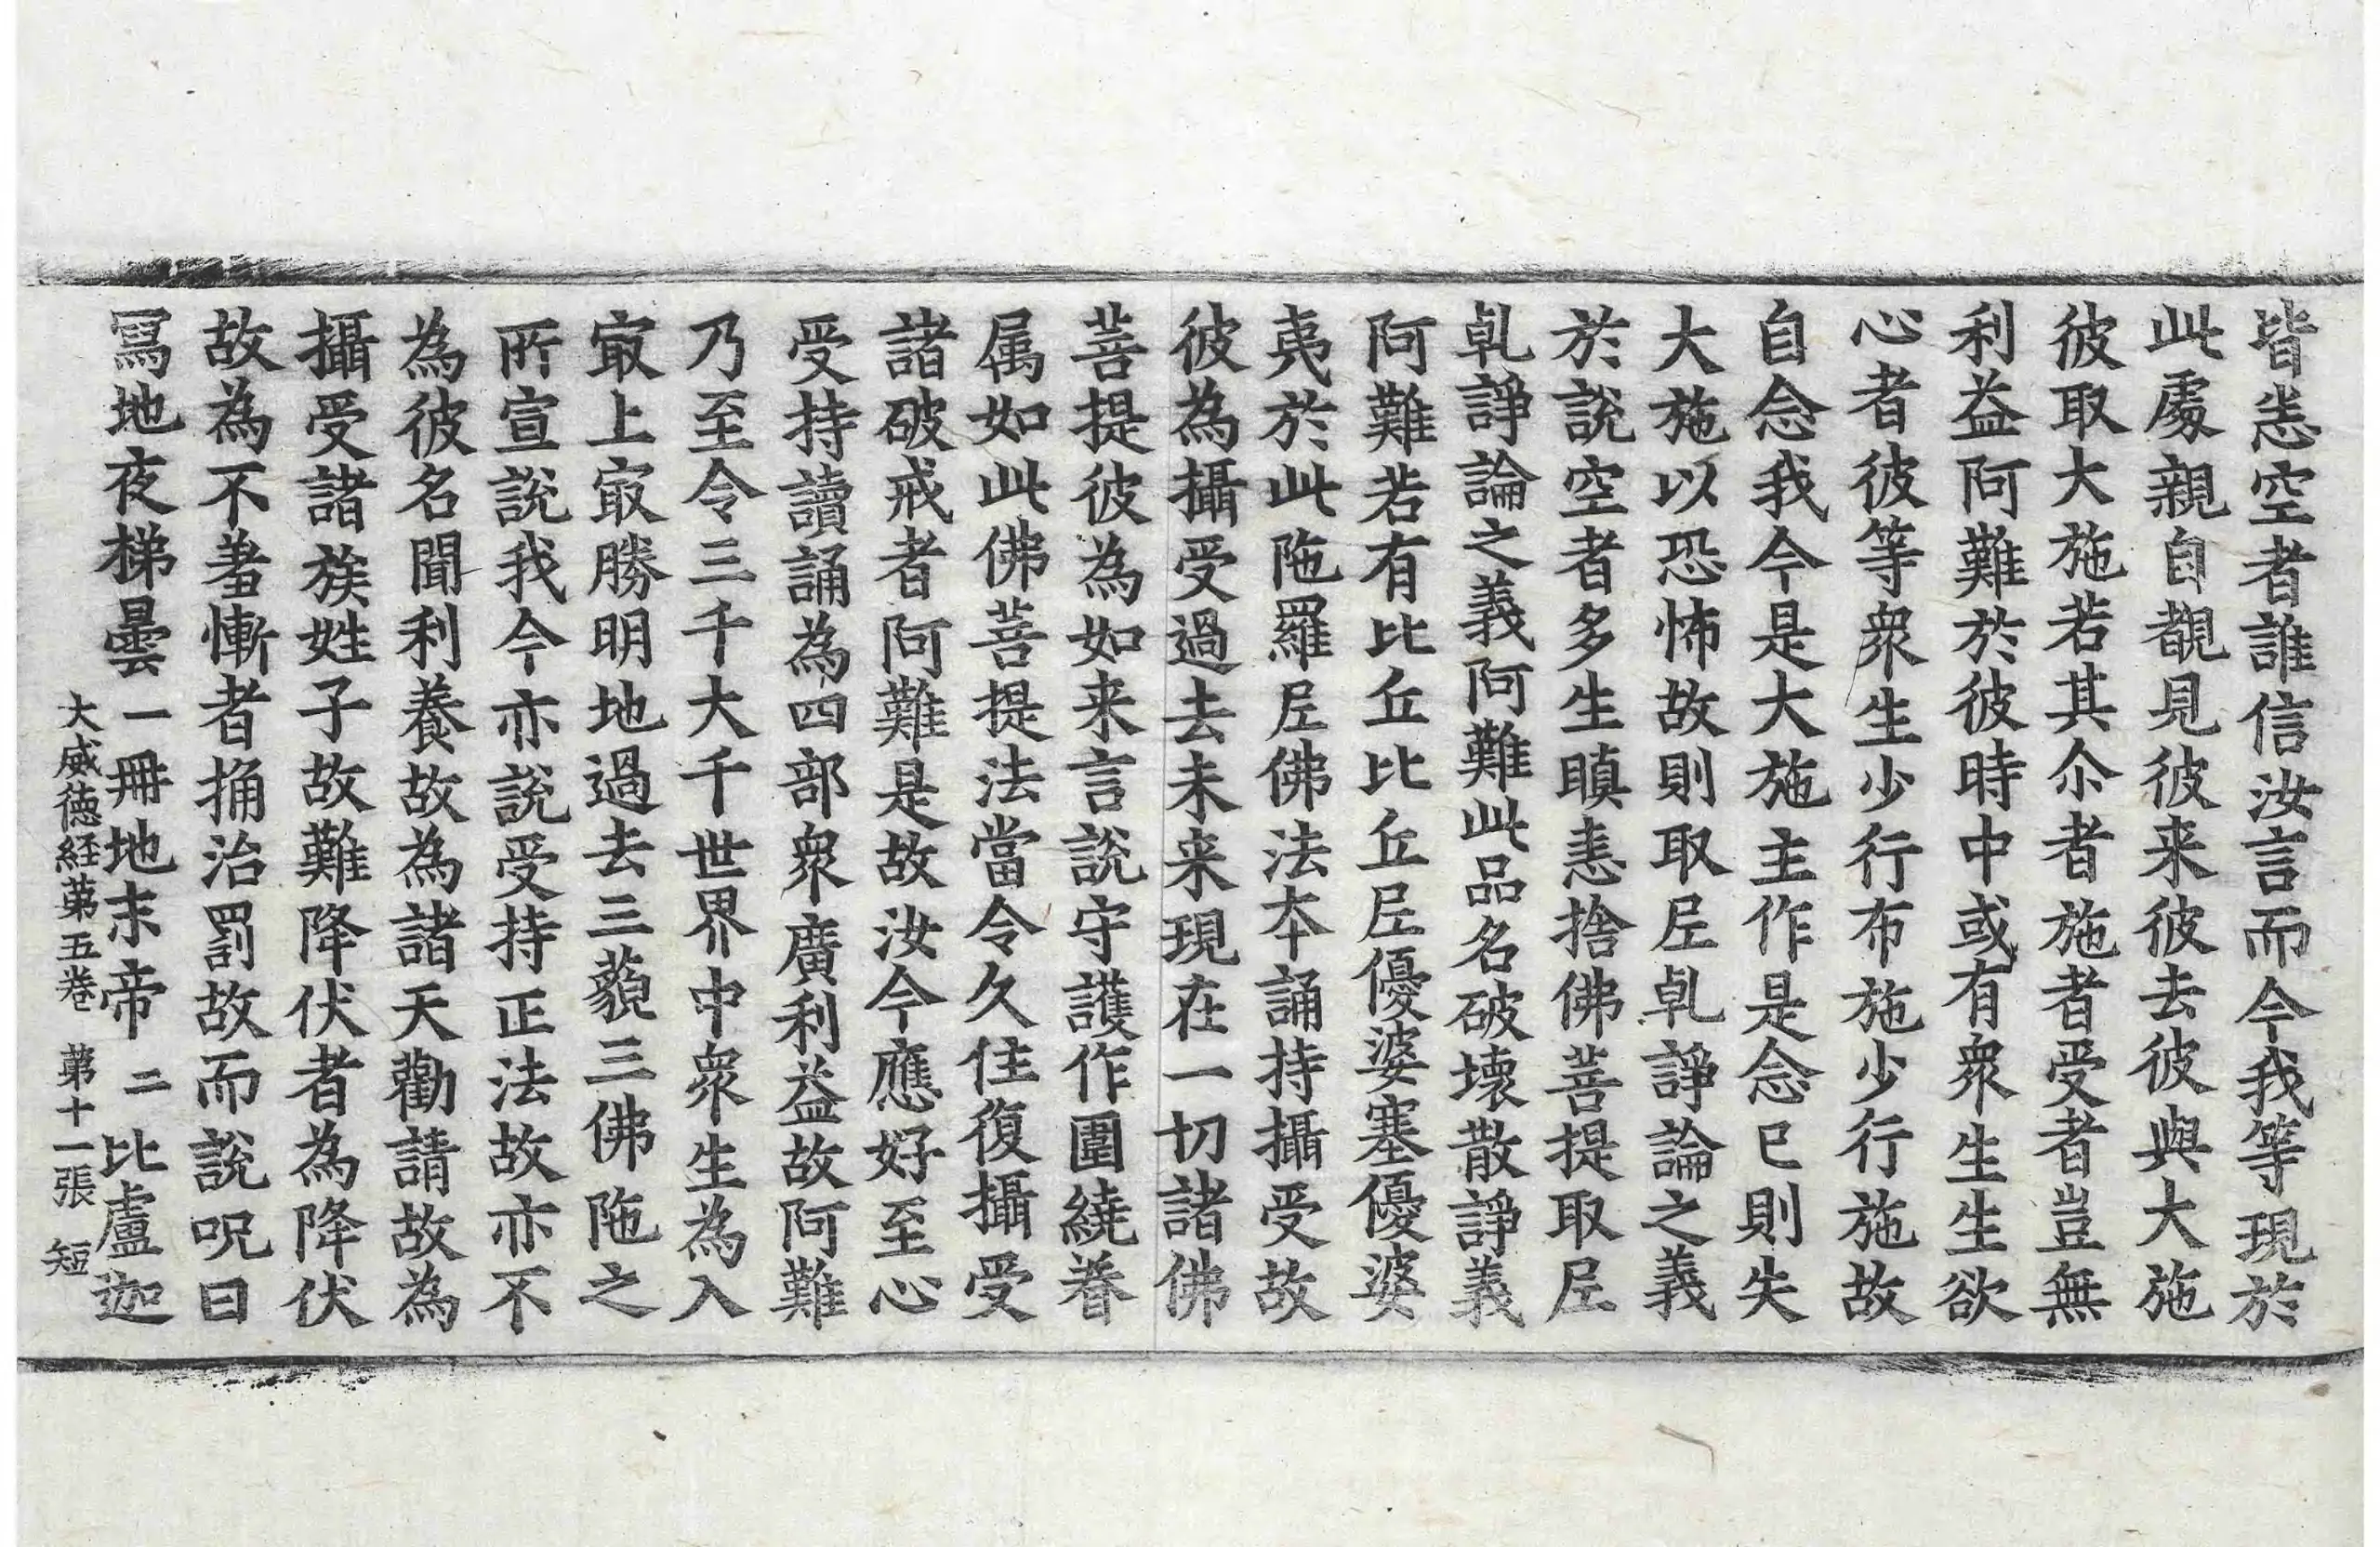 皆悉空者誰信汝言而今我等現於
此處親自覩見彼来彼去彼與大施
彼取大施若其尒者施者受者豈無
利益阿難於彼時中或有衆生生欲
心者彼等衆生少行布施少行施故
自念我今是大施主作是念已則失
大施以恐怖故則取尼乹諍論之義
於說空者多生瞋恚捨佛菩提取尼
乹諍論之義阿難此品名破壊散諍義
阿難若有比丘比丘尼優婆塞優婆
夷於此陁羅尼佛法本誦持攝受故
彼為攝受過去未来現在一切諸佛
菩提彼為如来言說守護作圍繞眷
属如此佛菩提法當令久住復攝受
諸破戒者阿難是故汝今應好至心
受持讀誦為四部衆廣利益故阿難
乃至令三千大千世界中衆生為入
㝡上㝡勝明地過去三藐三佛陁之
所宣說我今亦說受持正法故亦不
為彼名聞利養故為諸天勸請故為
攝受諸族姓子故難降伏者為降伏
故為不羞慚者捔治罰故而說呪曰
冩地夜梯曇一冊地末帝二比盧迦
大威德経苐五卷 苐十一張 短